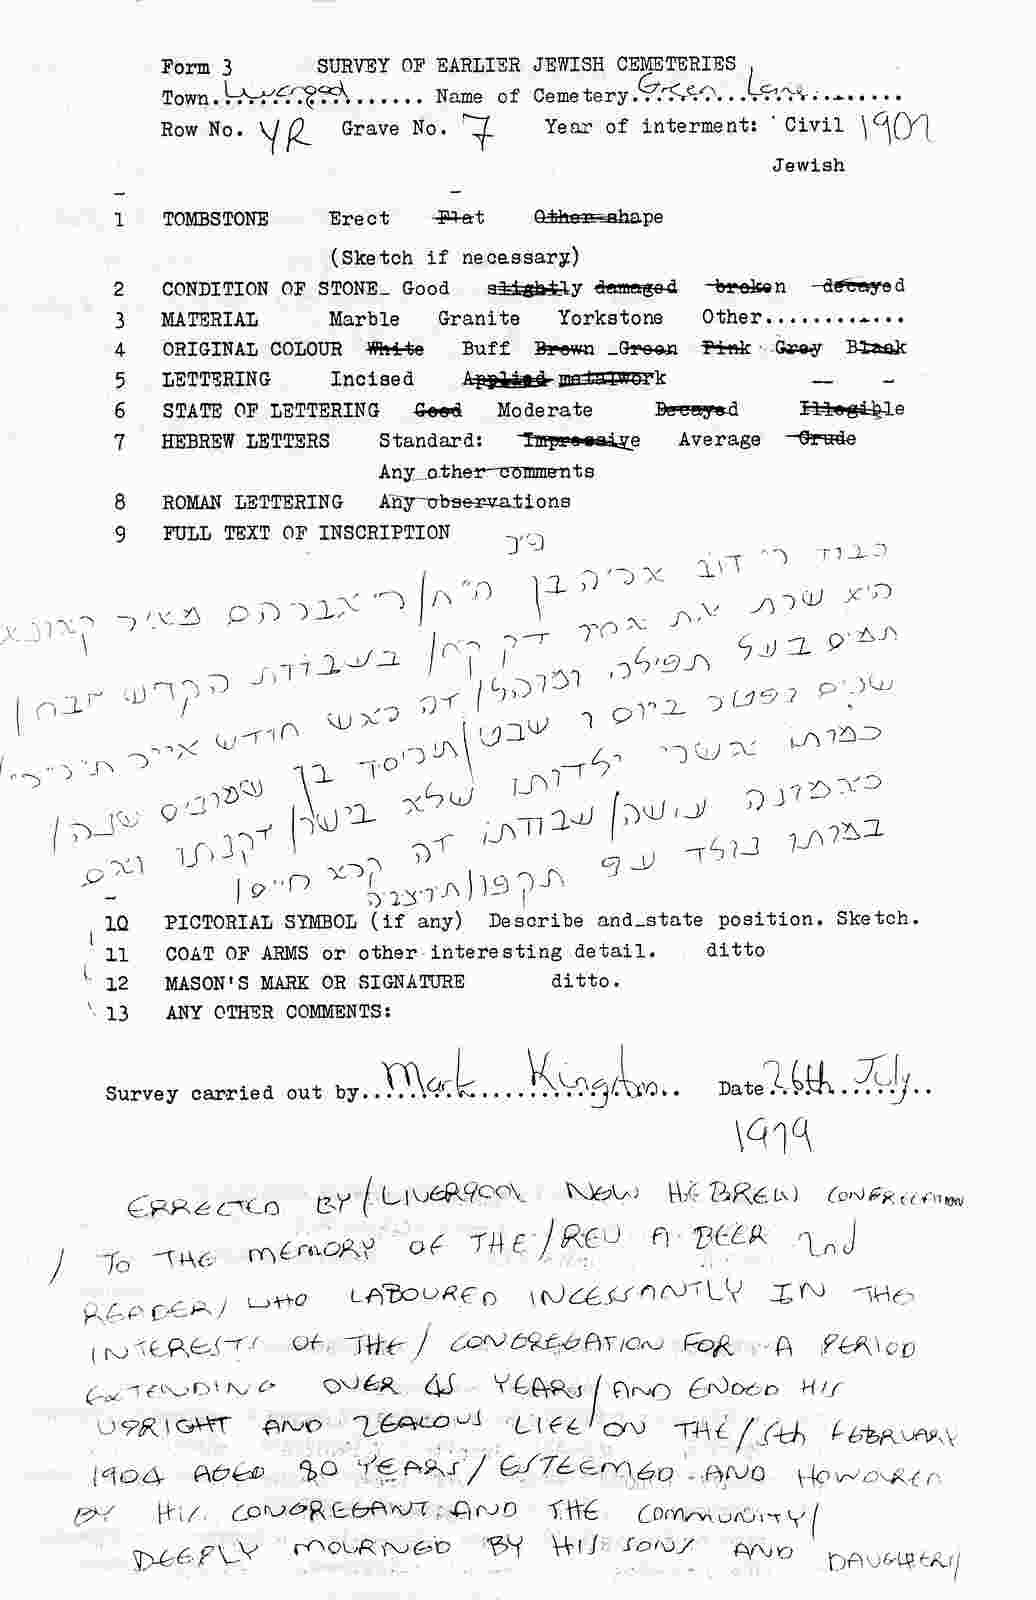 Form 3 SURVEY OF EARLIER JEWISH CEMETERIES
Town Liverpool Name of Cemetery Green Lane
Row No. YR Grave No. 7 Year of interment: Civil 1907
Jewish
1 TOMBSTONE Erect Flat Other shape
(Sketch if necessary)
2 CONDITION OF STONE Good slightly damaged broken decayed
3 MATERIAL Marble Granite Yorkstone Other............
4 ORIGINAL COLOUR White Buff Brown Green Pink Grey Black
5 LETTERING Incised Applied metalwork
6 STATE OF LETTERING Good Moderate Decayed Illegible
7 HEBREW LETTERS Standard: Impressive Average Crude
Any other comments
8 ROMAN LETTERING Any observations
9 FULL TEXT OF INSCRIPTION
כבוד ר' דוב אריה בן ה"ח/ר' אברהם מאיר
היא שרת את בעבודת הקדש
תמים בעל תפילה חודש אייר
שנים נפטר ביום ו שבט/תרסד בן שמונים שנה/
במותו אשרי ילדותו שלא
כאמונה עושה/
במותו נולד
10 PICTORIAL SYMBOL (if any) Describe and state position. Sketch.
11 COAT OF ARMS or other interesting detail. ditto
12 MASON'S MARK OR SIGNATURE ditto.
13 ANY OTHER COMMENTS:
Survey carried out by Mark Kingdon Date 26th July
1979
ERRECTED BY/LIVERPOOL NEW HEBREW CONGREGATION
/ TO THE MEMORY OF THE/REV A. BEER 2nd
READER/ WHO LABOURED INCESSANTLY IN THE
INTERESTS OF THE/ CONGREGATION FOR A PERIOD
EXTENDING OVER 45 YEARS/AND ENDED HIS
UPRIGHT AND ZEALOUS LIFE ON THE/5th FEBRUARY
1904 AGED 80 YEARS/ ESTEEMED AND HONOURED
BY HIS CONGREGANT AND THE COMMUNITY/
DEEPLY MOURNED BY HIS SONS AND DAUGHTERS/